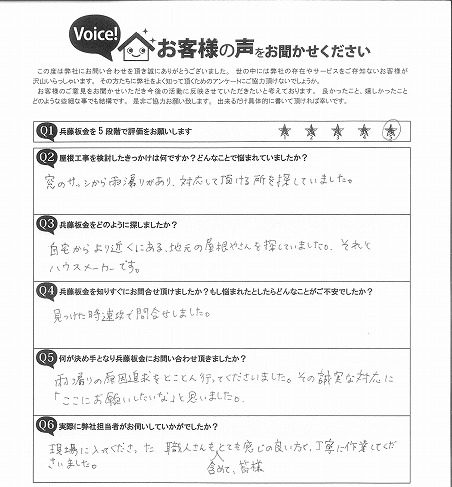 Voice!
お客様の声をお聞かせください
この度は弊社にお問い合わせを頂き誠にありがとうございました。世の中には弊社の存在やサービスをご存知ないお客様が
沢山いらっしゃいます。その方たちに弊社をよく知って頂くためのアンケートにご協力頂けないでしょうか。
お客様のご意見をお聞かせいただき今後の活動に反映させていただきたいと考えております。良かったこと、嬉しかったこと
どのような些細な事でも結構です。是非ご協力お願い致します。出来るだけ具体的に書いて頂ければ幸いです。
Q1 兵藤板金を5段階で評価をお願いします
1 2 3 4 5
Q2 屋根工事を検討したきっかけは何ですか？どんなことで悩まれていましたか？
窓のサッシから雨漏りがあり、対応して頂ける所を探していました。
Q3 兵藤板金をどのように探しましたか？
自宅からより近くにある、地元の屋根やさんを探していました。それと
ハウスメーカーです。
Q4 兵藤板金を知りすぐにお問合せ頂けましたか？もし悩まれたとしたらどんなことがご不安でしたか？
見つけた時連攻で問合せしました。
Q5 何が決め手となり兵藤板金にお問い合わせ頂きましたか？
雨漏りの原因追求をとことん行ってくださいました。その誠実な対応に
「ここにお願いしたいな」と思いました。
Q6 実際に弊社担当者がお伺いしていかがでしたか？
現場に入ってくださった 職人さんも とても感じの良い方で、丁寧に作業してくだ
さいました。
含めて、皆様